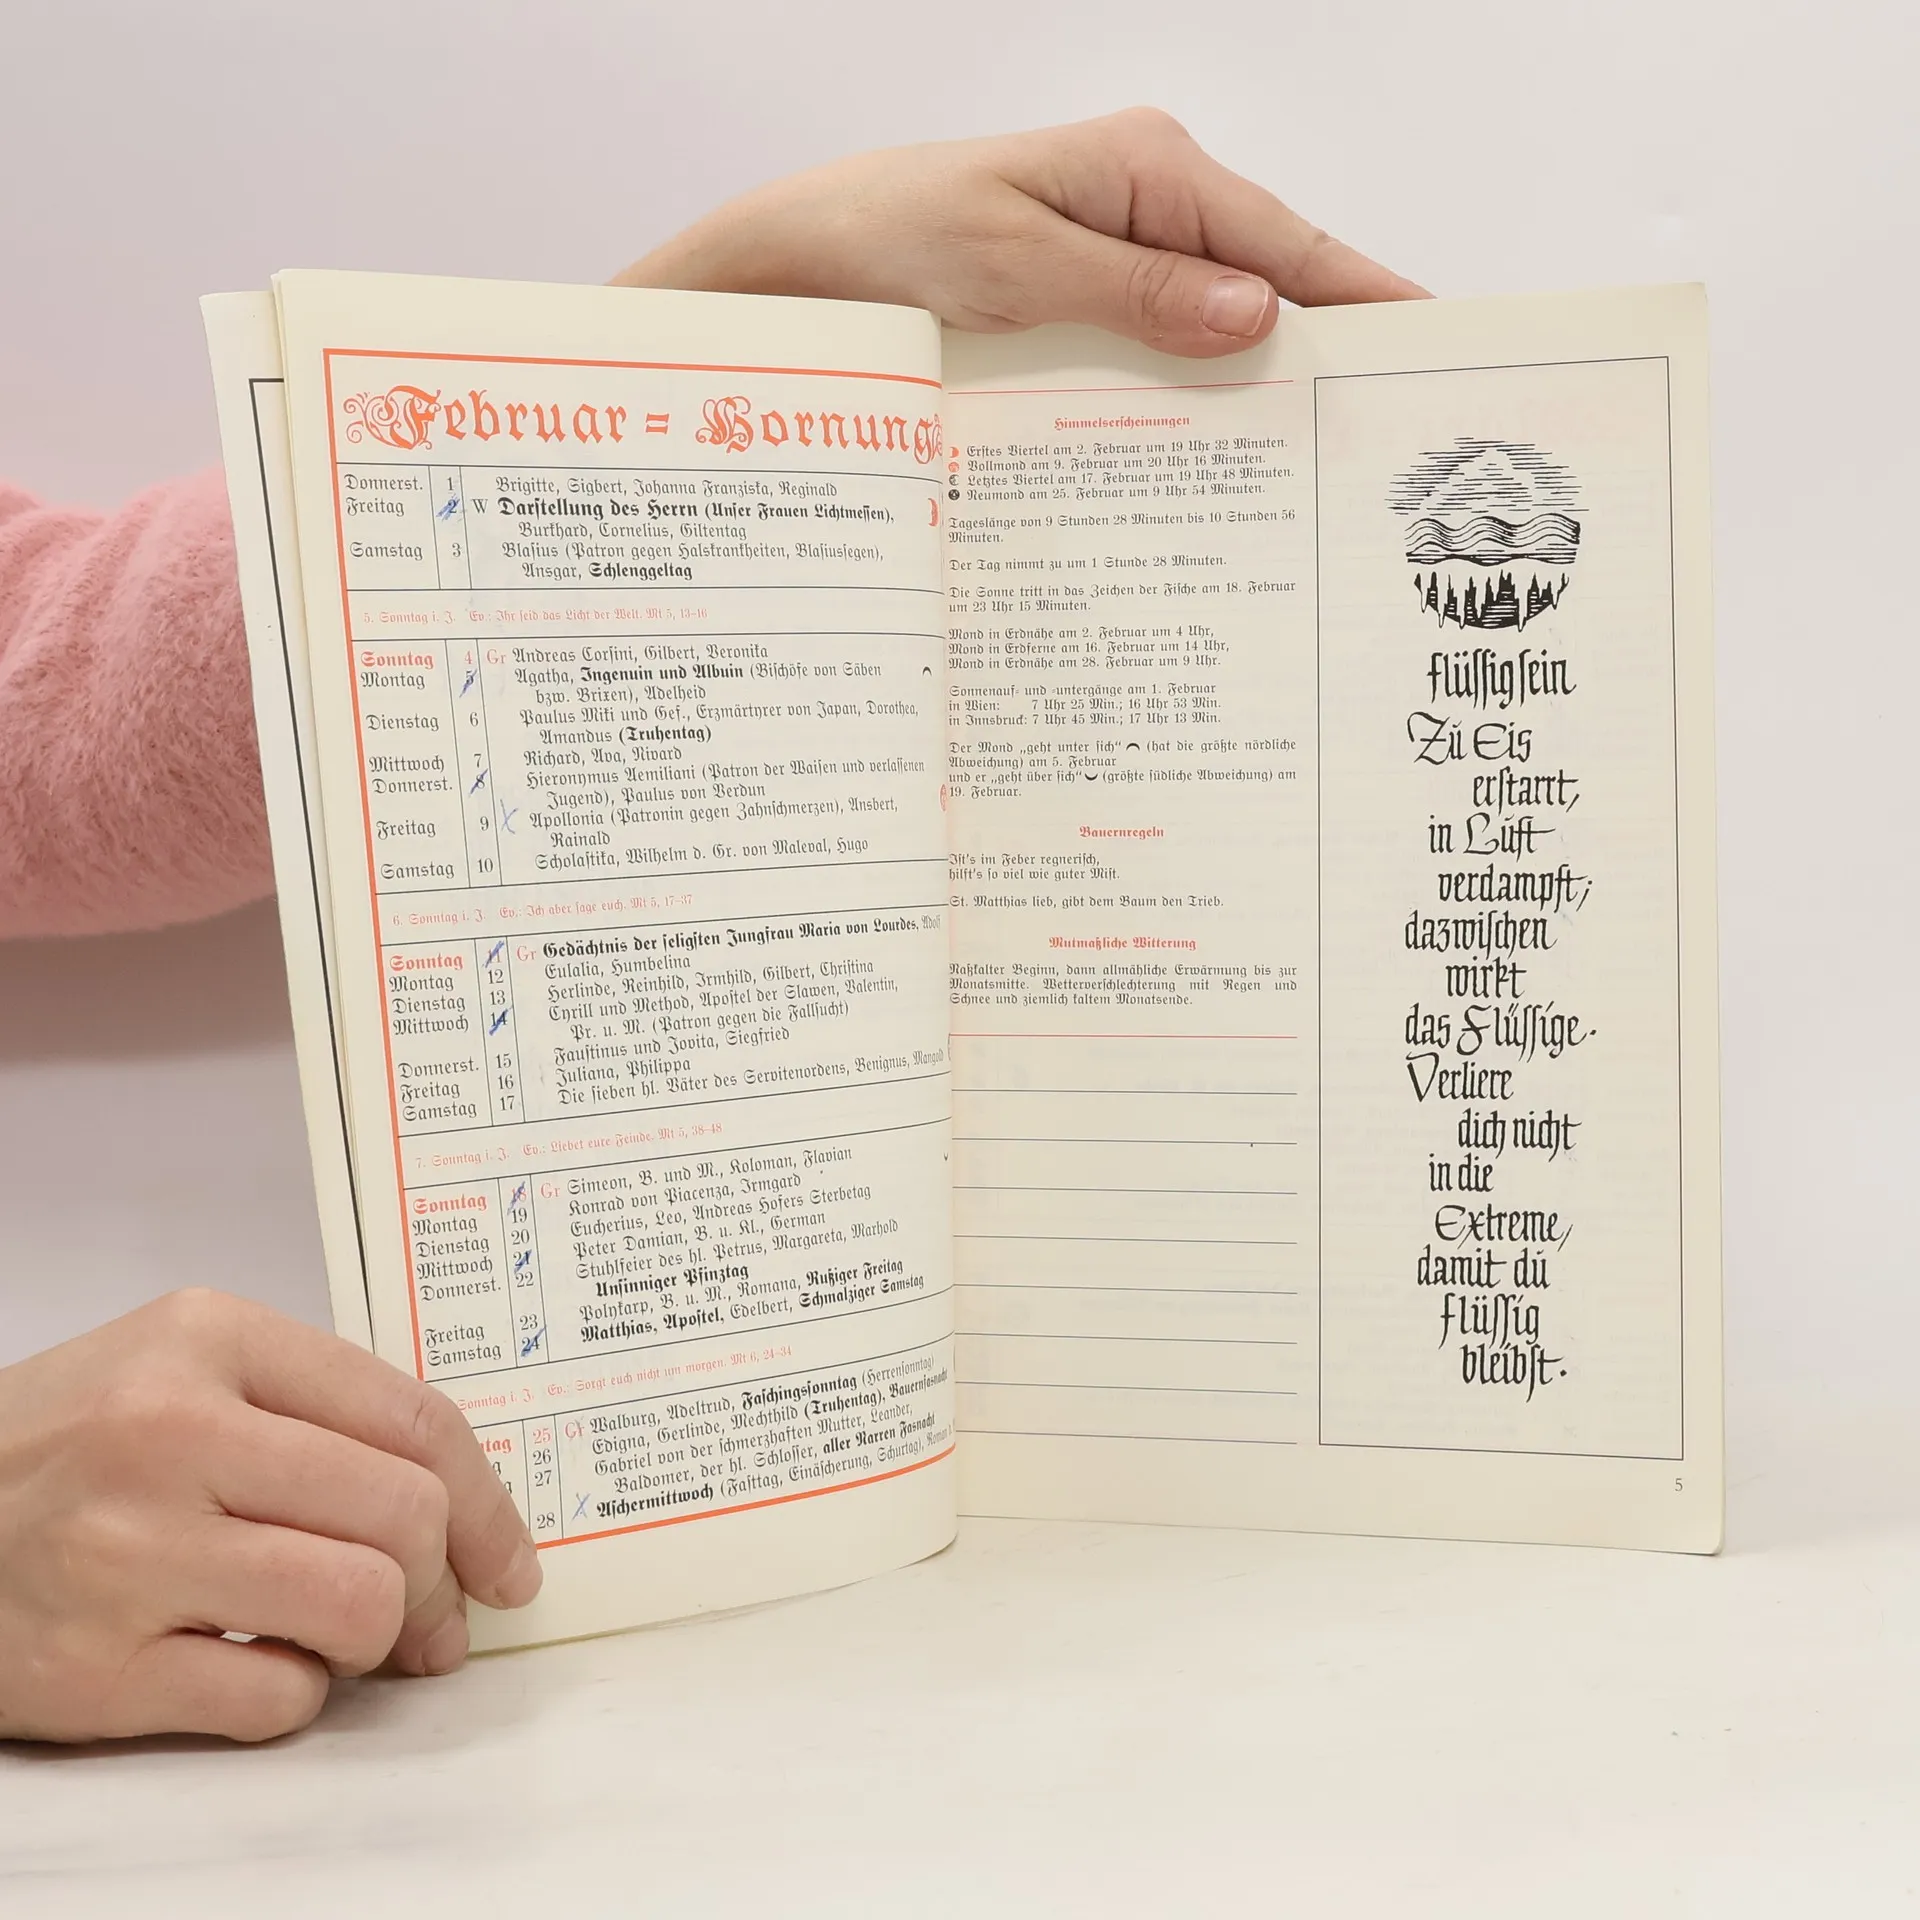 Februar = Hornung
Donnerst. 1 Brigitte, Sigbert, Johanna Franziska, Reginald
Freitag 2 W Darstellung des Herrn (Unser Frauen Lichtmessen),
Burkhard, Cornelius, Giltentag
Samstag 3 Blasius (Patron gegen Halskrankheiten, Blasiussegen),
Ansgar, Schlenggeltag
5. Sonntag i. J. Ev.: Ihr seid das Licht der Welt. Mt 5, 13–16
Sonntag 4 Gr Andreas Corsini, Gilbert, Veronika
Montag 5 Agatha, Ingenuin und Albuin (Bischöfe von Säben
bzw. Brixen), Adelheid
Dienstag 6 Paulus Miki und Gef., Erzmärtyrer von Japan, Dorothea,
Amandus (Truhentag)
Mittwoch 7 Richard, Ava, Nivard
Donnerst. 8 Hieronymus Aemiliani (Patron der Waisen und verlassenen
Jugend), Paulus von Verdun
Freitag 9 X Apollonia (Patronin gegen Zahnschmerzen), Ansbert,
Rainald
Samstag 10 Scholastika, Wilhelm d. Gr. von Maleval, Hugo
6. Sonntag i. J. Ev.: Ich aber sage euch. Mt 5, 17–37
Sonntag 11 Gr Gedächtnis der seligsten Jungfrau Maria von Lourdes, Adolf
Montag 12 Eulalia, Humbelina
Dienstag 13 Herlinde, Reinhild, Irmhild, Gilbert, Christina
Mittwoch 14 Cyrill und Method, Apostel der Slawen, Valentin,
Pr. u. M. (Patron gegen die Fallsucht)
Donnerst. 15 Faustinus und Jovita, Siegfried
Freitag 16 Juliana, Philippa
Samstag 17 Die sieben hl. Väter des Servitenordens, Benignus, Mangold
7. Sonntag i. J. Ev.: Liebet eure Feinde. Mt 5, 38–48
Sonntag 18 Gr Simeon, B. und M., Koloman, Flavian
Montag 19 Konrad von Piacenza, Irmgard
Dienstag 20 Eucherius, Leo, Andreas Hofers Sterbetag
Mittwoch 21 Peter Damian, B. u. Kl., German
Donnerst. 22 Stuhlfeier des hl. Petrus, Margareta, Marhold
Unsinniger Pfinztag
Freitag 23 Polykarp, B. u. M., Romana, Rußiger Freitag
Samstag 24 Matthias, Apostel, Edelbert, Schmalziger Samstag
Sonntag i. J. Ev.: Sorgt euch nicht um morgen. Mt 6, 24–34
tag 25 Gr Walburg, Adeltrud, Faschingsonntag (Herrensonntag)
g 26 Edigna, Gerlinde, Mechthild (Truhentag), Bauernfasnacht
g 27 Gabriel von der schmerzhaften Mutter, Leander,
Baldomer, der hl. Schlosser, aller Narren Fasnacht
28 X Aschermittwoch (Fasttag, Einäscherung, Schurtag), Roman
Himmelserscheinungen
Erstes Viertel am 2. Februar um 19 Uhr 32 Minuten.
Vollmond am 9. Februar um 20 Uhr 16 Minuten.
Letztes Viertel am 17. Februar um 19 Uhr 48 Minuten.
Neumond am 25. Februar um 9 Uhr 54 Minuten.
Tageslänge von 9 Stunden 28 Minuten bis 10 Stunden 56
Minuten.
Der Tag nimmt zu um 1 Stunde 28 Minuten.
Die Sonne tritt in das Zeichen der Fische am 18. Februar
um 23 Uhr 15 Minuten.
Mond in Erdnähe am 2. Februar um 4 Uhr,
Mond in Erdferne am 16. Februar um 14 Uhr,
Mond in Erdnähe am 28. Februar um 9 Uhr.
Sonnenauf- und -untergänge am 1. Februar
in Wien: 7 Uhr 25 Min.; 16 Uhr 53 Min.
in Innsbruck: 7 Uhr 45 Min.; 17 Uhr 13 Min.
Der Mond „geht unter sich“ (hat die größte nördliche
Abweichung) am 5. Februar
und er „geht über sich“ (größte südliche Abweichung) am
19. Februar.
Bauernregeln
Ist's im Feber regnerisch,
hilft's so viel wie guter Mist.
St. Matthias lieb, gibt dem Baum den Trieb.
Mutmaßliche Witterung
Naßkalter Beginn, dann allmähliche Erwärmung bis zur
Monatsmitte. Wetterverschlechterung mit Regen und
Schnee und ziemlich kaltem Monatsende.
flüssig sein
Zu Eis
erstarrt,
in Luft
verdampft;
dazwischen
wirkt
das Flüssige.
Verliere
dich nicht
in die
Extreme,
damit du
flüssig
bleibst.
5